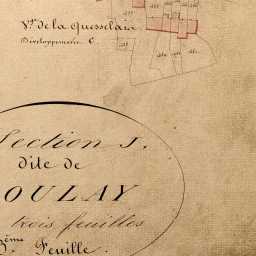 Vge de la quesselais
Développement C.
Section J.
dite de
OULAY
trois feuilles
3ème Feuille.